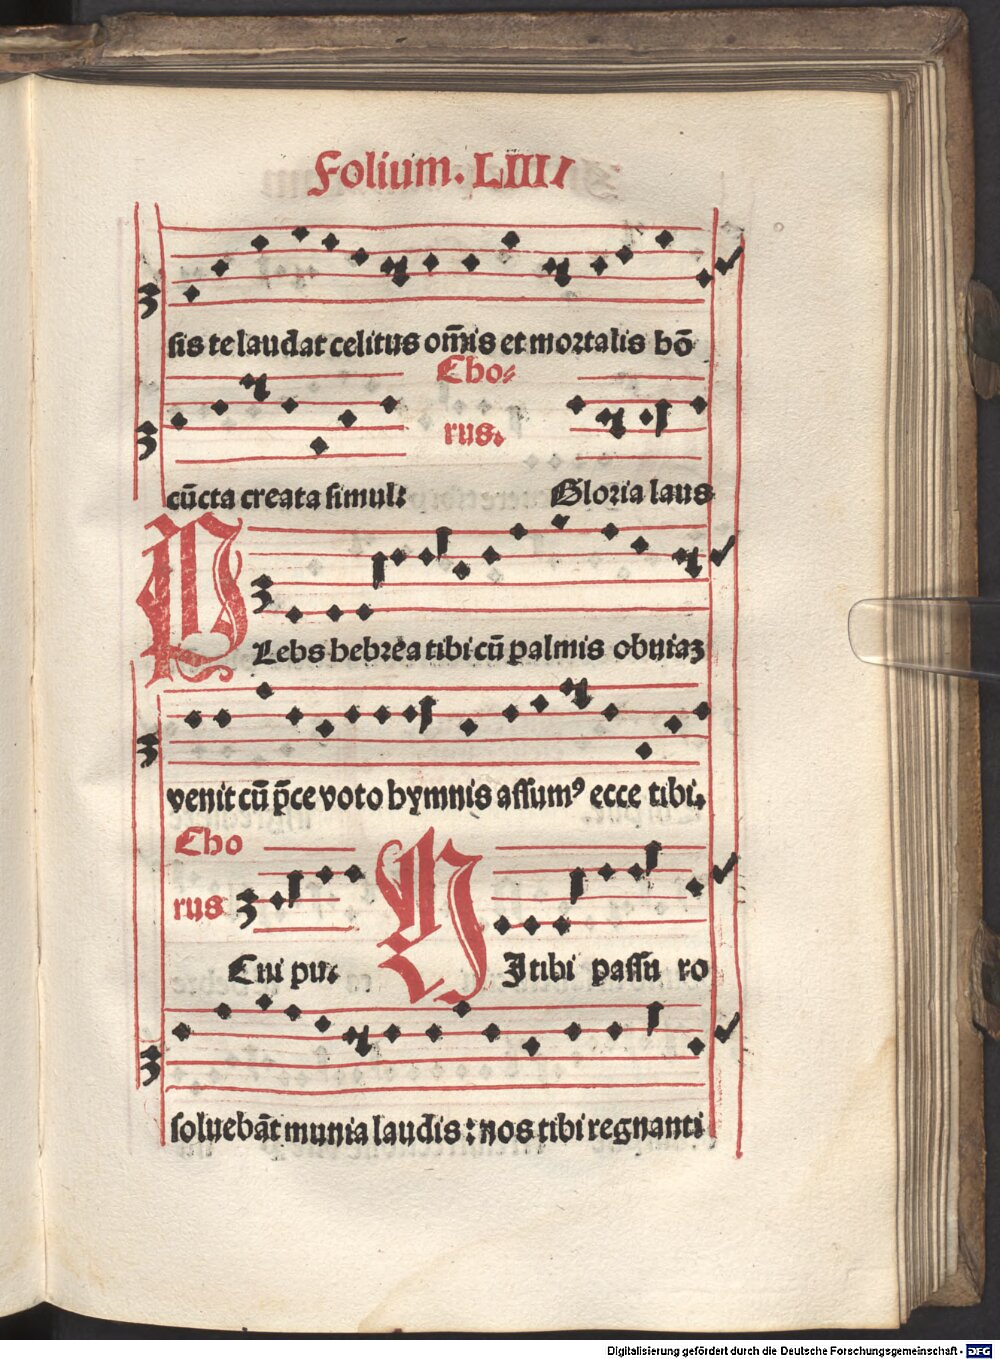 Folium. LIIII
sis te laudat celitus om̄is et mortalis hō
Cho⸗
rus.
cūcta creata simul: Gloria laus
PLebs hebrea tibi cū palmis obuiaꝫ
venit cū p̄ce voto hymnis assumꝰ ecce tibi.
Cho
rus
Cui pu. HI tibi passu ro
soluebāt munia laudis: nos tibi regnanti
Digitalisierung gefördert durch die Deutsche Forschungsgemeinschaft - DFG